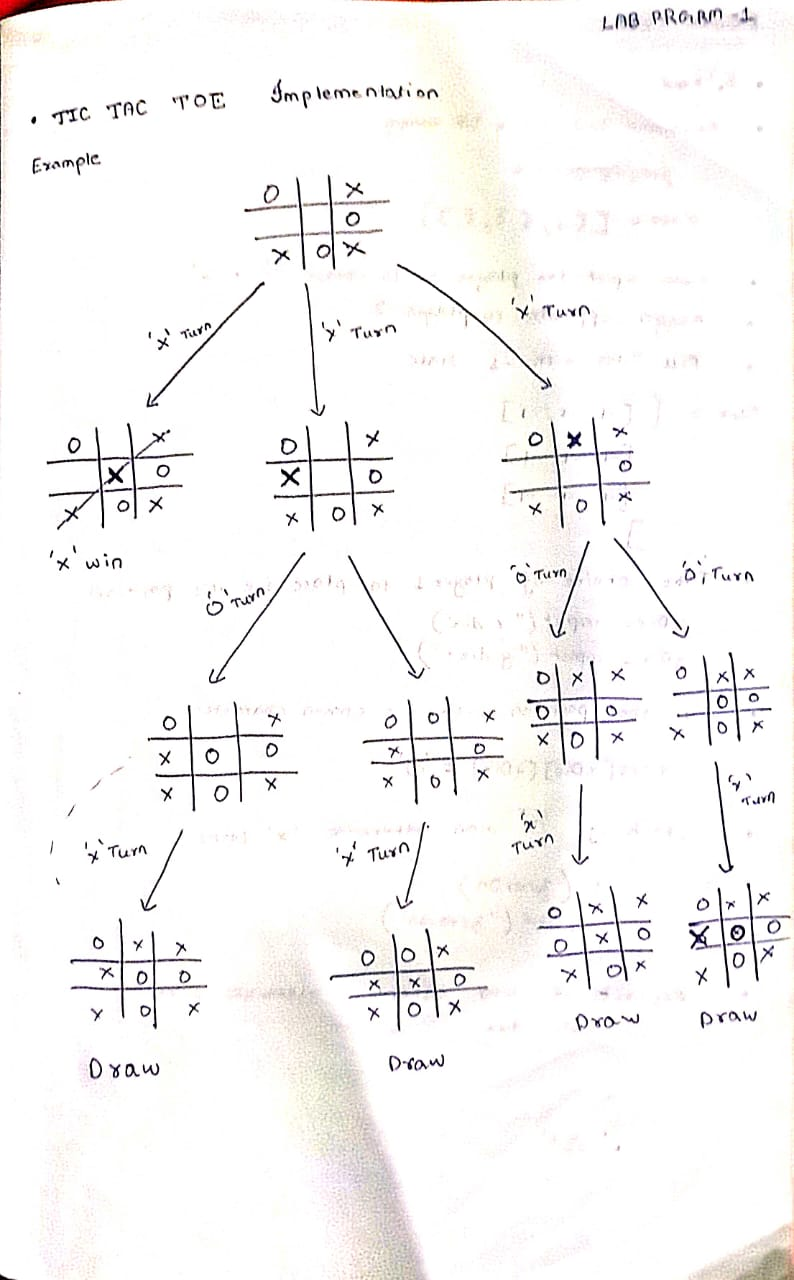 LAB PRGRM - 1
• TIC TAC TOE Implementation
Example
O | | X
| | O
X | O | X
'x' Turn 'x' Turn 'x' Turn
O | | X
| X | O
X | O | X
O | | X
X | | O
X | O | X
O | X | X
| | O
X | O | X
'x' win
'O' Turn 'O' Turn 'O' Turn
O | | X
X | O | O
X | O | X
O | O | X
X | | O
X | O | X
O | X | X
O | | O
X | O | X
O | X | X
| O | O
X | O | X
'x' Turn 'x' Turn 'x' Turn 'x' Turn
O | X | X
X | O | O
X | O | X
O | O | X
X | X | O
X | O | X
O | X | X
O | X | O
X | O | X
O | X | X
X | O | O
X | O | X
Draw Draw Draw Draw